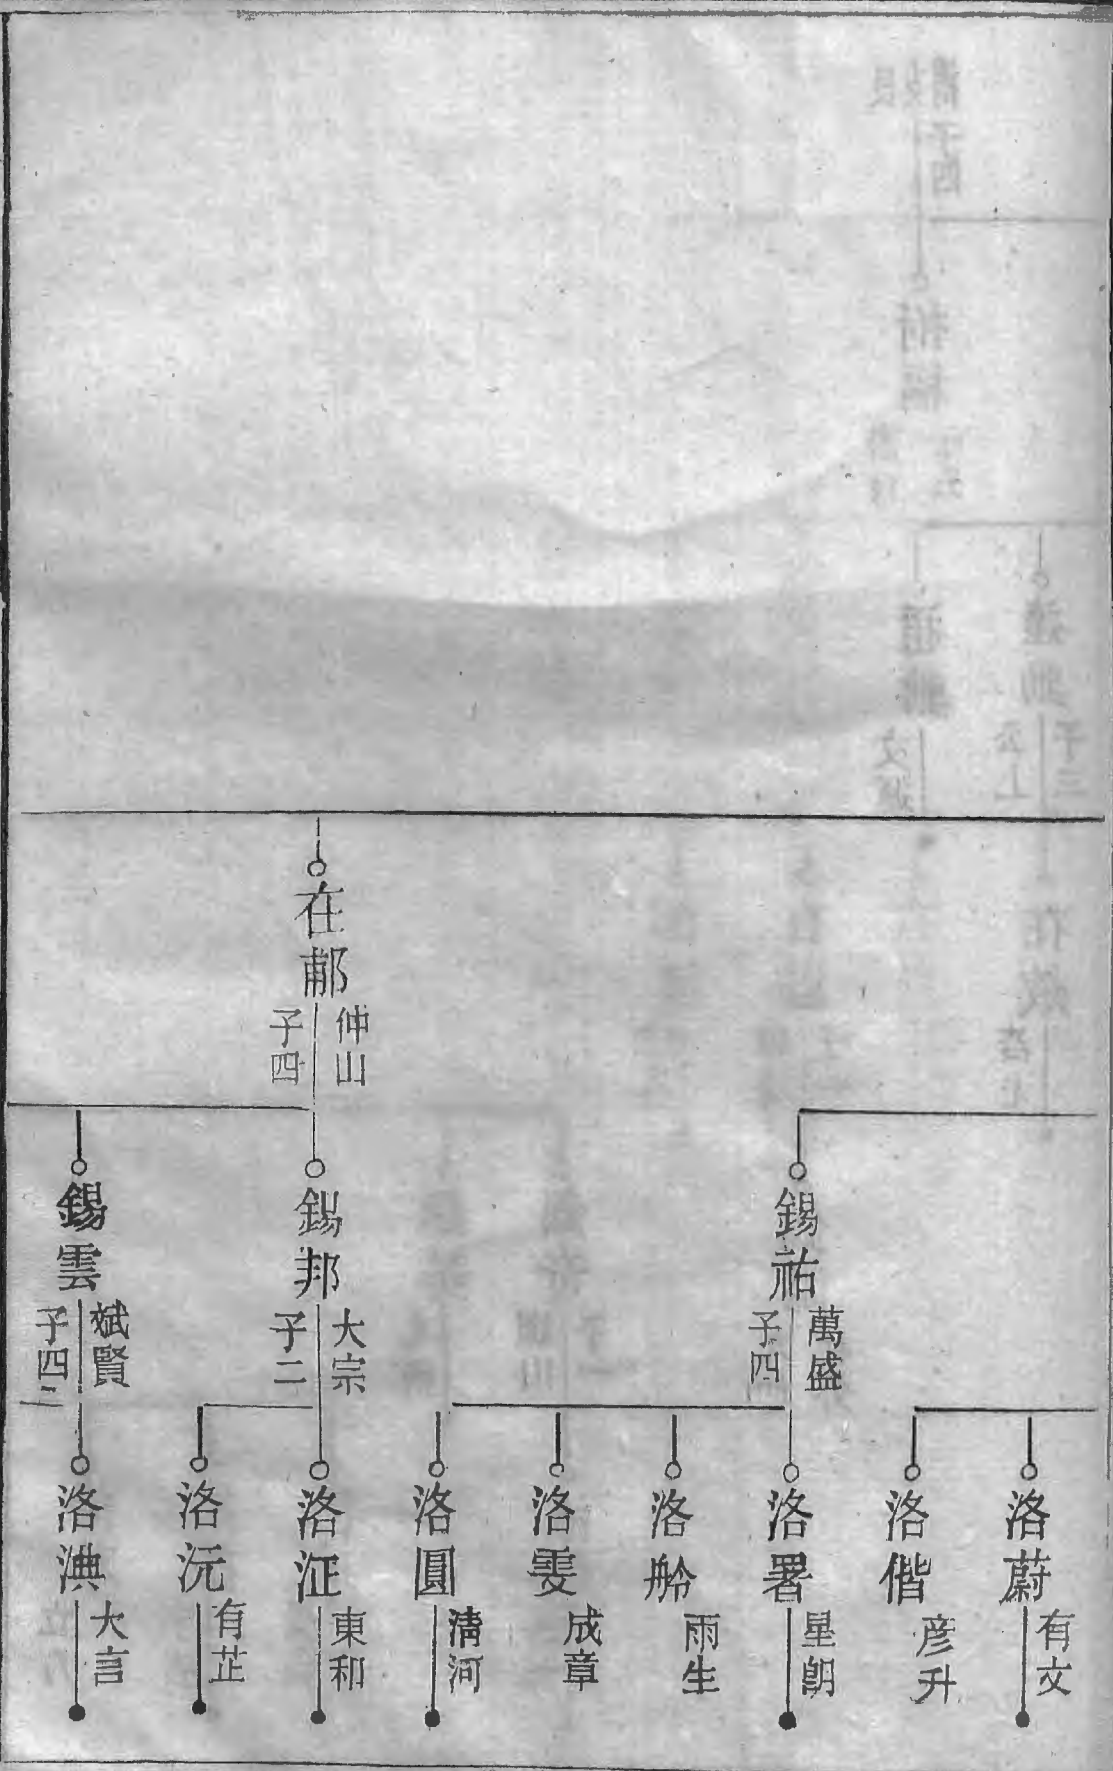 在鄘
仲山
子四
錫祐
萬盛
子四
錫邦
大宗
子二
錫雲
斌賢
子四
洛蔚
有文
洛偕
彦升
洛署
星朗
洛舲
雨生
洛雯
成章
洛圓
清河
洛沚
東和
洛沅
有芷
洛淟
大言